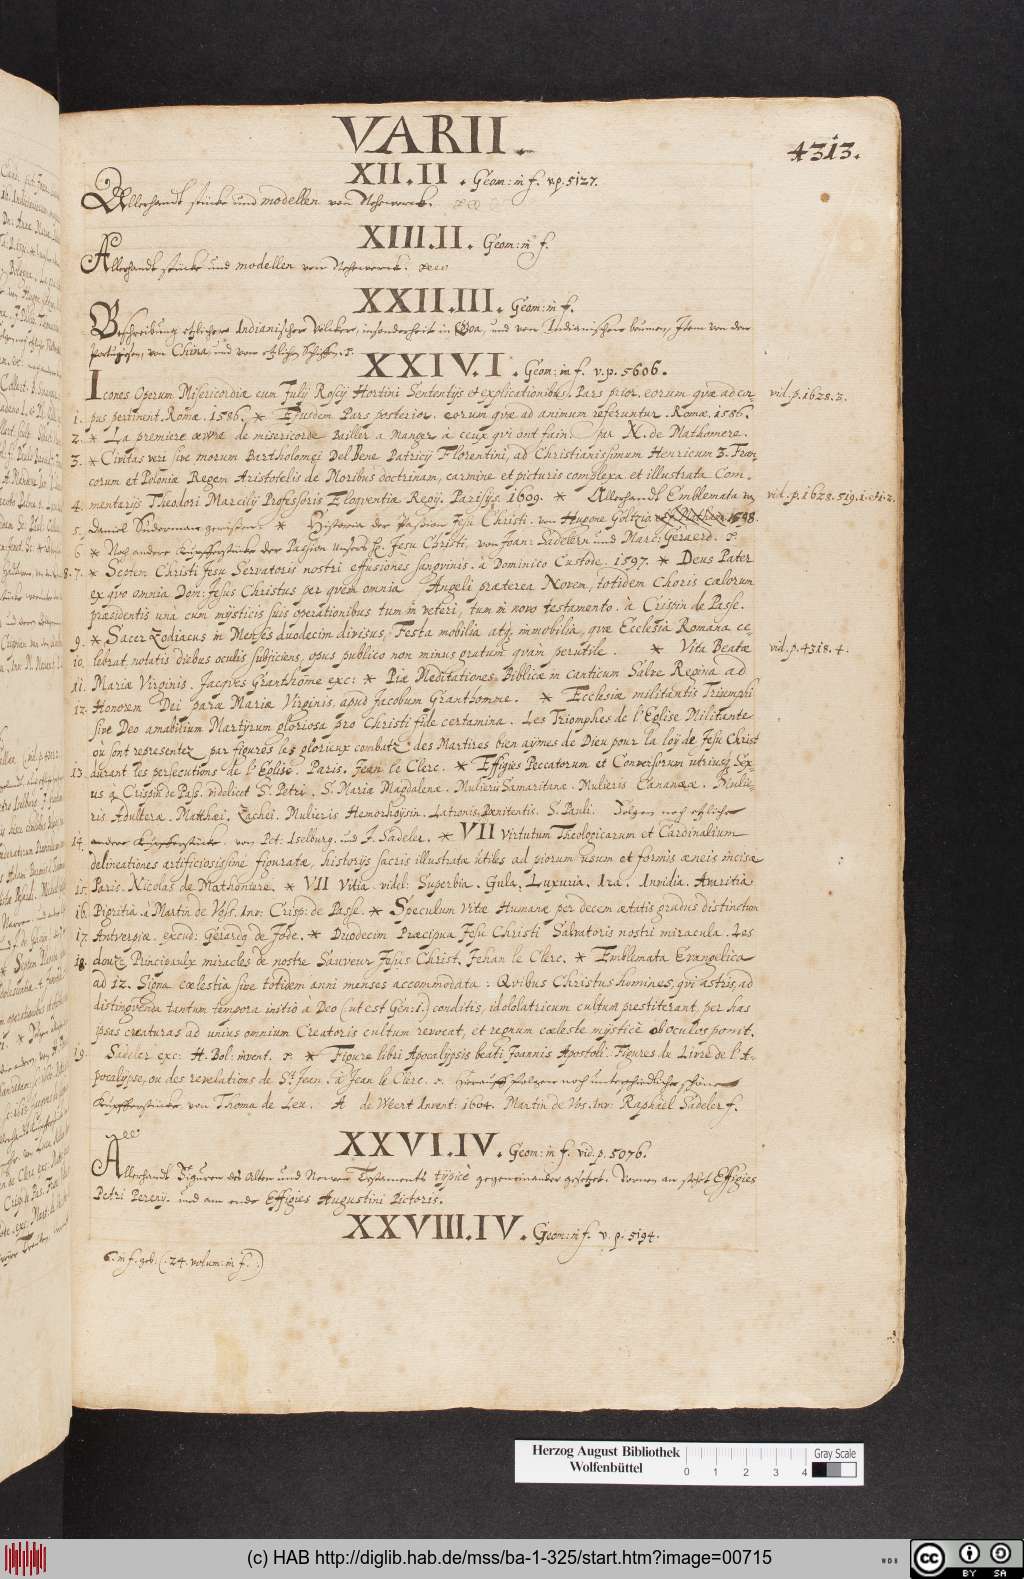 VARII.
4313.
XII.II. Geom: in f. v.p. 5127.
Allerhandt stücke und modellen von Nehewerck.
XIII.II. Geom: in f.
Allerhandt stücke und modellen von Nehewerck.
XXII.III. Geom: in f.
Beschreibung etzlicher Indianischer Völcker, insonderheit in Goa, und von Indianischen bäumen, Item von den
Portugisen, von China, und von etzlichen Schiffen.
XXIV.I. Geom: in f. v.p. 5606.
Icones Operum Misericordiæ cum Julij Roscij Hortini Sententijs et explicationibus. Pars prior. eorum quæ ad cor- vid. p. 1628.3.
1. pus pertinent. Romæ. 1586. * Ejusdem Pars posterior. eorum quæ ad animum referuntur. Romæ. 1586.
2. * La premiere œuvre de misericorde Bailler a Manger à ceux qui ont fain. par N. de Mathoniere.
3. * Civitas veri sive morum Bartholomei Del Bene Patricij Florentini, ad Christianissimum Henricum 3. Fran-
corum et Poloniæ Regem Aristotelis de Moribus doctrinam, carmine et picturis complexa et illustrata Com-
4. mentarijs Theodori Marcilij Professoris Eloquentiæ Regij. Parisijs. 1609. * Allerhandt Emblemata von vid. p. 1628.519.1.et.2.
5. Daniel Süderman gerissen. * Historia der Passion Jesu Christi. von Hugone Goltzio 1598.
6. * Noch andere Kupfferstücke der Passion unsers H. Jesu Christi, von Joan: Sadelern und Marc: Geraerd.
8. 7. * Septem Christi Jesu Servatoris nostri effusiones sanguinis. à Dominico Custode. 1597. * Deus Pater
ex quo omnia Dom: Jesus Christus per quem omnia Angeli præterea Novem, totidem Choris cælorum
præsidentis unà cum mysticis suis operationibus tum in veteri, tum in novo testamento. à Crispin de Passe.
9. * Sacer Zodiacus in Menses duodecim divisus, Festa mobilia atq. immobilia, quæ Ecclesia Romana ce-
10. lebrat notatis diebus oculis subjiciens, opus publico non minus gratum quàm perutile. * Vita Beatæ vid. p. 4318.4.
11. Mariæ Virginis. Jacques Granthome exc: * Piæ Meditationes Biblicæ in canticum Salve Regina ad
12. Honorem Dei paræ Mariæ Virginis, apud Jacobum Granthomme. * Ecclesiæ militantis Triumphi
sive Deo amabilium Martyrum gloriosa pro Christi fide certamina. Les Triomphes de l'Eglise Militante
où sont representez par figures les glorieux combatz des Martires bien aymes de Dieu pour la loy de Jesu Christ
13. durant les persecutions de l'Eglise. Paris. Jean le Clerc. * Effigies Peccatorum et Conversorum utriusq. Sex-
us q. Crispin de Pass. videlicet S. Petri. S. Maria Magdalena. Mulieris Samaritanæ. Mulieris Cananææ. Mulie-
ris Adulteræ. Matthæi. Zachei. Mulieris Hemorhoysin. Latronis Pœnitentis. S. Pauli. Volgen noch etzliche
14. andere Kupfferstücke. von Pet: Iselburg. und J. Sadeler. * VII Virtutum Theologicarum et Cardinalium
delineationes artificiosissimè figuratæ, historijs sacris illustratæ utiles ad piorum usum et formis æneis incisæ
15. Paris. Nicolas de Mathoniere. * VII Vitia. videl: Superbia. Gula. Luxuria. Ira. Invidia. Avaritia
16. Pigritia. à Martin de Voss. Inv: Crisp: de Passe. * Speculum Vitæ Humanæ per decem ætatis gradus distinctum
17. Antverpiæ. excud: Gerardq. de Jode. * Duodecim Præcipua Jesu Christi Salvatoris nostri miracula. Les
18. douze Principaulx miracles de nostre Sauveur Jesus Christ. Jehan le Clerc. * Emblemata Evangelica
ad 12. Signa cœlestia sive totidem anni menses accommodata: Quibus Christus homines, qui astris, ad
distinguenda tantum tempora initio à Deo (ut est Gen:1.) conditis, idololatricum cultum prestiterant, per has
ipsas creaturas ad unius omnium Creatoris cultum revocat, et regnum cœleste mysticè ob oculos ponit.
19. Sadeler exc: H. Bol: invent. * Figuræ libri Apocalypsis beati Joannis Apostoli. Figures du Livre de l'A-
pocalypse, ou des revelations de St. Jean. à Jean le Clerc. Hierauff folgen noch unterschiedliche schöne
Kupfferstücke von Thoma de Leu. A de Weert Invent: 1604. Martin de Vos. Inv: Raphael Sadeler f.
XXVI.IV. Geom: in f. vid. p. 5076.
Allerhandt Figuren des Alten und Newen Testaments typicè gegeneinander gesetzet. Vornen an stehet Effigies
Petri Perezy. und am ende Effigies Augustini Pictoris.
XXVIII.IV. Geom: in f. v.p. 5194.
6. in f. geb. (.24. volum: in f.)
Herzog August Bibliothek
Wolfenbüttel
0 1 2 3 4
Gray Scale
(c) HAB http://diglib.hab.de/mss/ba-1-325/start.htm?image=00715
WDB
CC BY SA